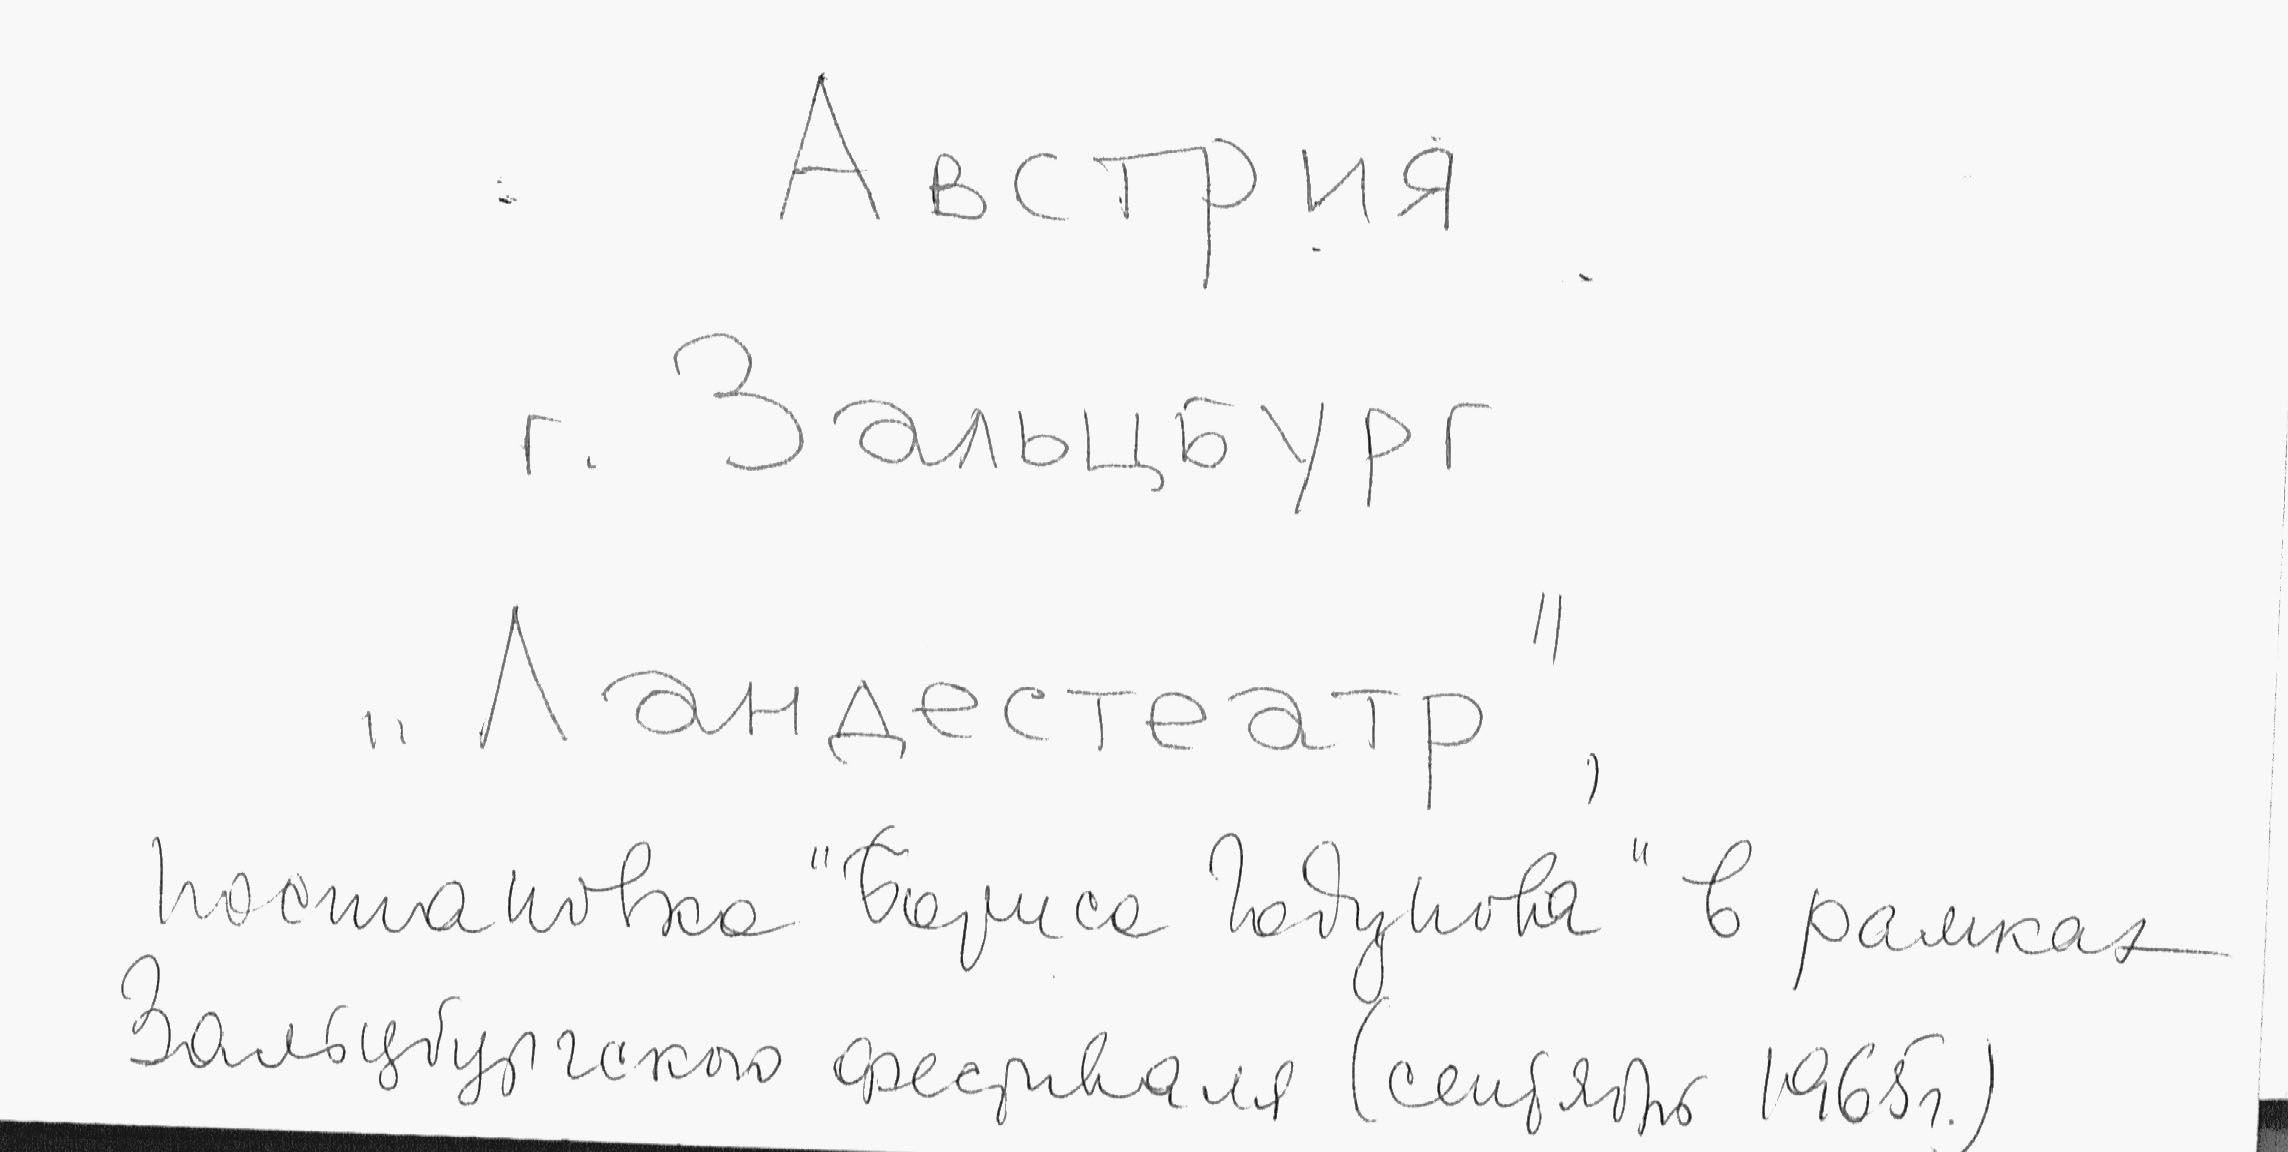 Австрия
г. Зальцбург
„Ландестеатр",
постановка "Бориса Годунова" в рамках
Зальцбургского фестиваля (сентябрь 1965г.)